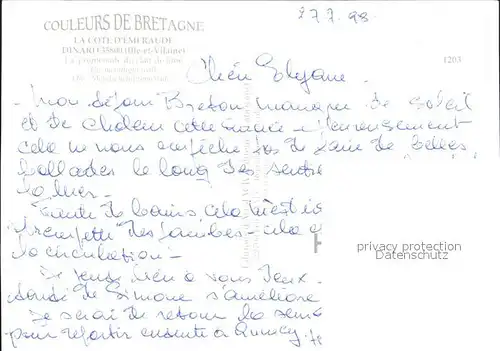 27.7.98
COULEURS DE BRETAGNE
LA COTE D'EMERAUDE
DINARD 35800 (Ille-et-Vilaine)
La promenade du clair de lune
1203
Chère
Mon séjour Breton manque de soleil
et de chaleur cette année - heureusement
cela ne nous empêche pas de faire de belles
ballades le long des sentie
la mer -
de bains, cela
trempette des jambes - cela
la circulation -
Je pense bien à vous deux -
santé de Simone s'améliore
Je serai de retour la sema
pour repartir ensuite à
privacy protection